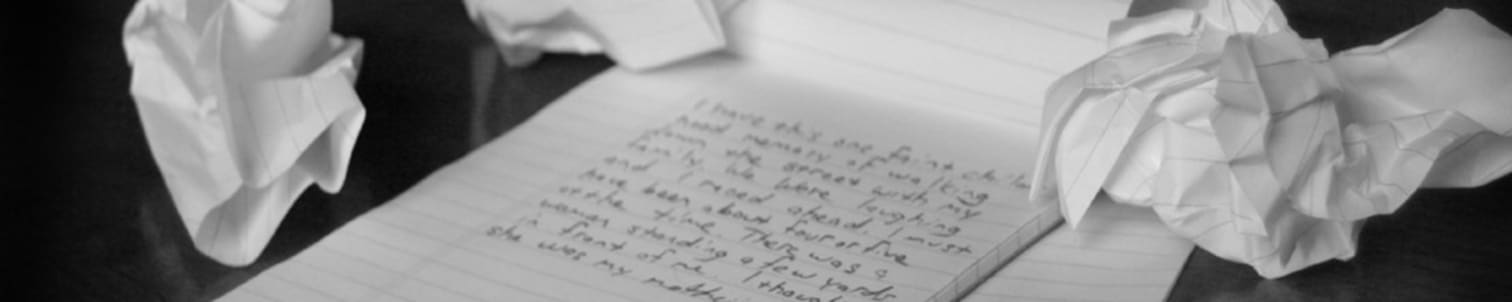 I have this one faint child
hood memory of walking
down the street with my
family. We were laughing
and I raced ahead. I must
have been about four or five
at the time. There was a
woman standing a few yards
in front of me. I thought
she was my mother